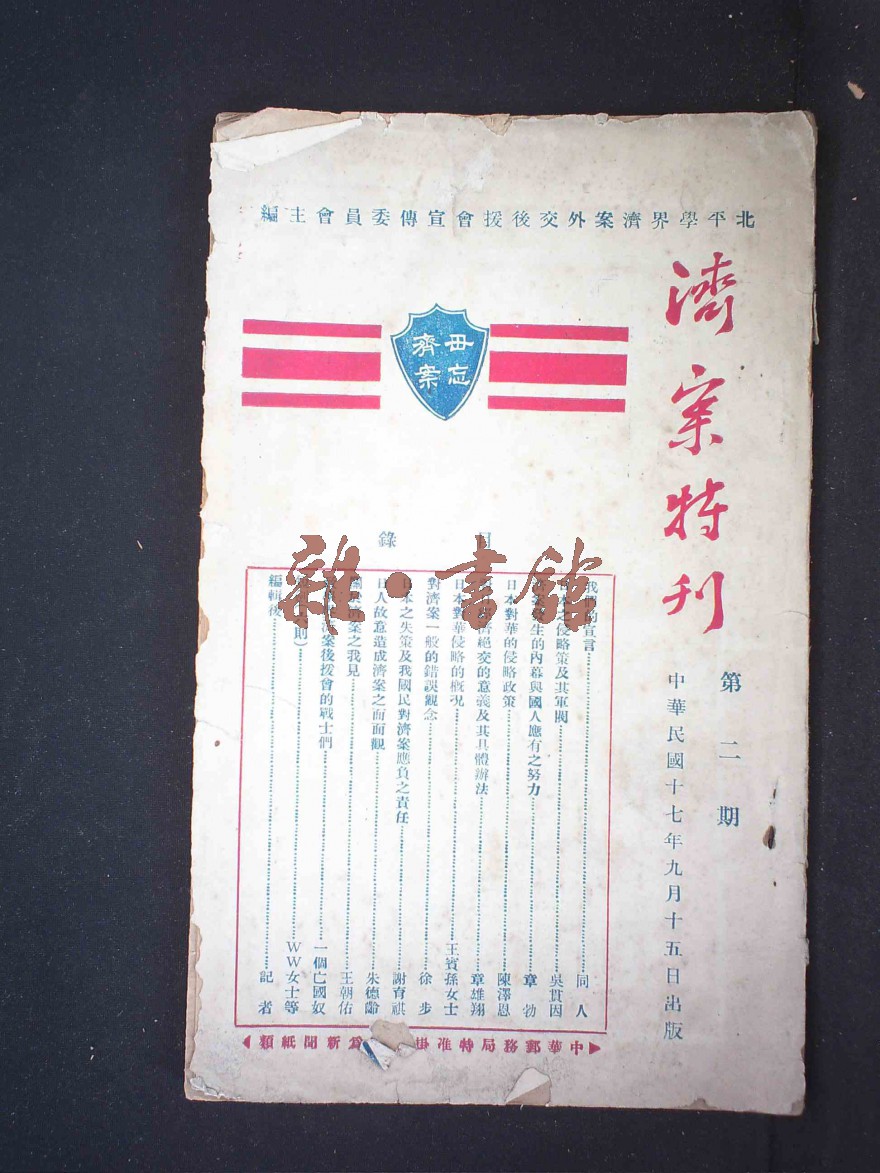 北平學界濟案外交後援會宣傳委員會主編
濟案特刊
第二期
中華民國十七年九月十五日出版
毋忘
齊案
目錄
我們的宣言 同人
日本之侵略策及其軍閥 吳貫因
濟案發生的內幕與國人應有之努力 章勃
日本對華的侵略政策 陳澤恩
經濟絕交的意義及其具體辦法 章雄翔
日本對華侵略的概況 王賓孫女士
對濟案一般的錯誤觀念 徐步
日本之失策及我國民對濟案應負之責任 謝育祺
日人故意造成濟案之面面觀 朱德齡
關於濟案之我見 王朝佑
濟案後援會的戰士們 一個亡國奴
則） WW女士等
編輯後 記者
中華郵務局特准掛 爲新聞紙類
雜·書館